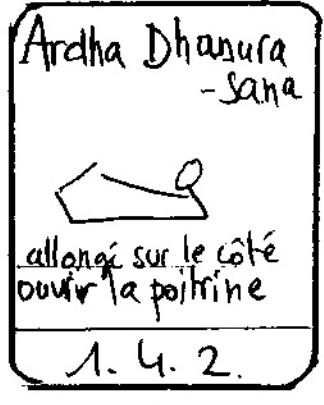 Ardha Dhanura
-sana
allongé sur le côté
ouvrir la poitrine
1. 4. 2.